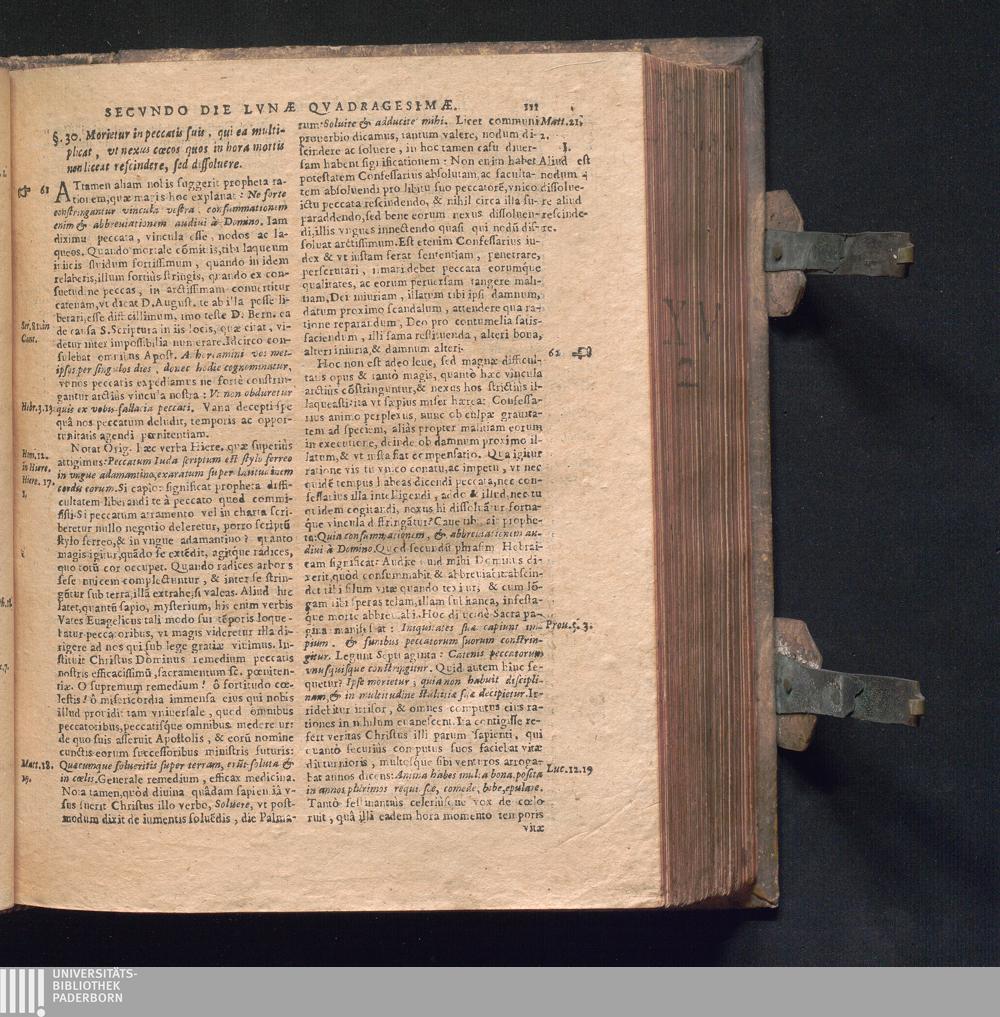 SECVNDO DIE LVNÆ QVADRAGESIMÆ.
111
§. 30. Morietur in peccatis suis, qui ea multi-
plicat, vt nexus cœcos quos in hora mortis
non liceat rescindere, sed dissoluere.
61
ATtamen aliam nobis suggerit propheta ra-
tionem, quæ magis hoc explanat: Ne forte
constringantur vincula vestra, consummationem
enim & abbreviationem audiui à Domino. Iam
diximus peccata, vincula esse, nodos ac la-
queos. Quando mortale cõmittis, tibi laqueum
iniicis fluidum fortissimum, quando in idem
relaberis, illum fortiùs stringis, quando ex con-
suetudine peccas, in arctissimam conuertitur
catenam, vt dicat D. August. te ab illa posse li-
berari, esse difficillimum, imo teste D. Bern. ea
Ser, 81. in
Cant.
de causa S. Scriptura in iis locis, quæ citat, vi-
detur inter impossibilia numerare. Idcirco con-
sulebat omnibus Apost. Adhortamini vos met-
ipsos per singulos dies, donec hodie cognominatur,
vt nos peccatis expediamus ne fortè constrin-
gantur arctiùs vincula nostra: Vt non obduretur
Hebr. 3. 13.
quis ex vobis fallacia peccati. Vana decepti spe
quâ nos peccatum deludit, temporis ac oppor-
tunitatis agendi pœnitentiam.
Notat Orig. hæc verba Hiere. quæ superiùs
Hom. 12.
in Hiere.
Hiere. 17.
1.
attigimus: Peccatum Iuda scriptum est stylo ferreo
in vngue adamantino, exaratum super latitudinem
cordis eorum. Si capior significat propheta diffi-
cultatem liberandi te à peccato quod commi-
sisti. Si peccatum atramento vel in charta scri-
beretur nullo negotio deleretur, porro scriptũ
stylo ferreo, & in vngue adamantino? quanto
magis igitur, quãdo se extẽdit, agitque radices,
quo totũ cor occupet. Quando radices arboris
sese inuicem complectuntur, & inter se strin-
gũtur sub terra, illã extrahe, si valeas. Aliud hic
latet, quantũ sapio, mysterium, his enim verbis
Vates Euagelicus tali modo sui tẽporis loque-
batur peccatoribus, vt magis videretur illa di-
rigere ad nos qui sub lege gratiæ viuimus. In-
stituit Christus Dominus remedium peccatis
nostris efficacissimũ, sacramentum sc. pœniten-
tiæ. O supremum remedium! ô fortitudo cœ-
lestis! ô misericordia immensa eius qui nobis
illud prouidit tam vniuersale, quod omnibus
peccatoribus, peccatisque omnibus medere ur:
de quo suis asseruit Apostolis, & eorũ nomine
cunctis eorum successoribus ministris futuris:
Matt. 18.
19.
Quæcumque solueritis super terram, erũt soluta &
in cœlis. Generale remedium, efficax medicina.
Nota tamen, quòd diuina quâdam sapientiâ v-
sus fuerit Christus illo verbo, Soluere, vt post-
modum dixit de iumentis soluẽdis, die Palma-
rum: Soluite & adducite mihi. Licet communi
Matt. 21,
2.
prouerbio dicamus, tantum valere, nodum di-
scindere ac soluere, in hoc tamen casu diuer-
I.
Aliud est
nodum
dissolue-
re aliud
rescinde-
re.
sam habent significationem: Non enim habet
potestatem Confessarius absolutam, ac faculta-
tem absoluendi pro libitu suo peccatorẽ, vnico
ictu peccata rescindendo, & nihil circa illa su-
paraddendo, sed bene eorum nexus dissoluen-
di, illis vngues innectendo quasi qui nodũ dis-
soluat arctissimum. Est etenim Confessarius iu-
dex & vt iustam ferat sententiam, penetrare,
perscrutari, rimari debet peccata eorumque
qualitates, ac eorum peruersam tangere mali-
tiam, Dei iniuriam, illatum tibi ipsi damnum,
datum proximo scandalum, attendere qua ra-
tione reparandum, Deo pro contumelia satis-
faciendum, illi fama restituenda, alteri bona,
alteri iniuria, & damnum alteri.
62
Hoc non est adeo leue, sed magnæ difficul-
tatis opus & tantò magis, quantò hæc vincula
arctiùs cõstringuntur, & nexus hos strictiùs il-
laqueasti: ita vt sæpius miser hæreat Confessa-
rius animo perplexus, nunc ob culpæ grauita-
tem ad speciem, aliàs propter malitiam eorum
in executione, deinde ob damnum proximo il-
latum, & vt iusta fiat compensatio. Qua igitur
ratione vis tu vnico conatu, ac impetu, vt nec
quidẽ tempus habeas dicendi peccata, nec con-
fessarius illa intelligendi, addo & illud, nec tu
quidem cogitandi, nexus hi dissoluãtur fortia-
que vincula disstringãtur? Caue tibi ait prophe-
ta: Quia consummationem, & abbreviationem au-
diui à Domino. Quod secundũ phrasim Hebrai-
cam significat: Audite quid mihi Dominus di-
xerit, quòd consummabit & abbreuiabit: abscin-
det tibi filum vitæ quando texitur, & cum lõ-
gam tibi speras telam, illam subitanea, infesta-
que morte abbreuiabit. Hoc diuinè Sacra pa-
gina manifestat: Iniquitates suæ capiunt im-
Prou. 5. 3.
pium, & funibus peccatorum suorum constrin-
gitur. Legunt Septuaginta: Catenis peccatorum
vnusquisque constringitur. Quid autem hinc se-
quetur? Ipse morietur, quia non habuit discipli-
nam, & in multitudine stultitiæ suæ decipietur. Ir-
ridebitur irrisor, & omnes computus eius ra-
tiones in nihilum euanescent. Ita contigisse re-
fert veritas Christus illi parum sapienti, qui
quantò securiùs computus suos faciebat vitæ
diuturnioris, multosque sibi venturos arroga-
bat annos dicens: Anima habes multa bona, posita
Luc. 12. 19
in annos plurimos requiesce, comede, bibe, epulare.
Tantò festinantius celeriúsque vox de cœlo
ruit, quâ illâ eadem hora momento temporis
vitæ
XV
2
UNIVERSITÄTS-
BIBLIOTHEK
PADERBORN